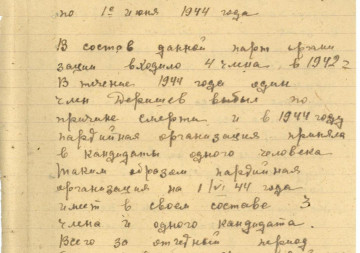 по 1е июня 1944 года
В состав данной парт органи
зации входило 4 члена в 1942 г
В течение 1944 года один
член Деришев выбыл по
причине смерти и в 1944 году
партийная организация приняла
в кандидаты одного человека
Таким образом партийная
организация на 1/VI 44 года
имеет в своем составе 3
члена и одного кандидата.
Всего за отчетный период